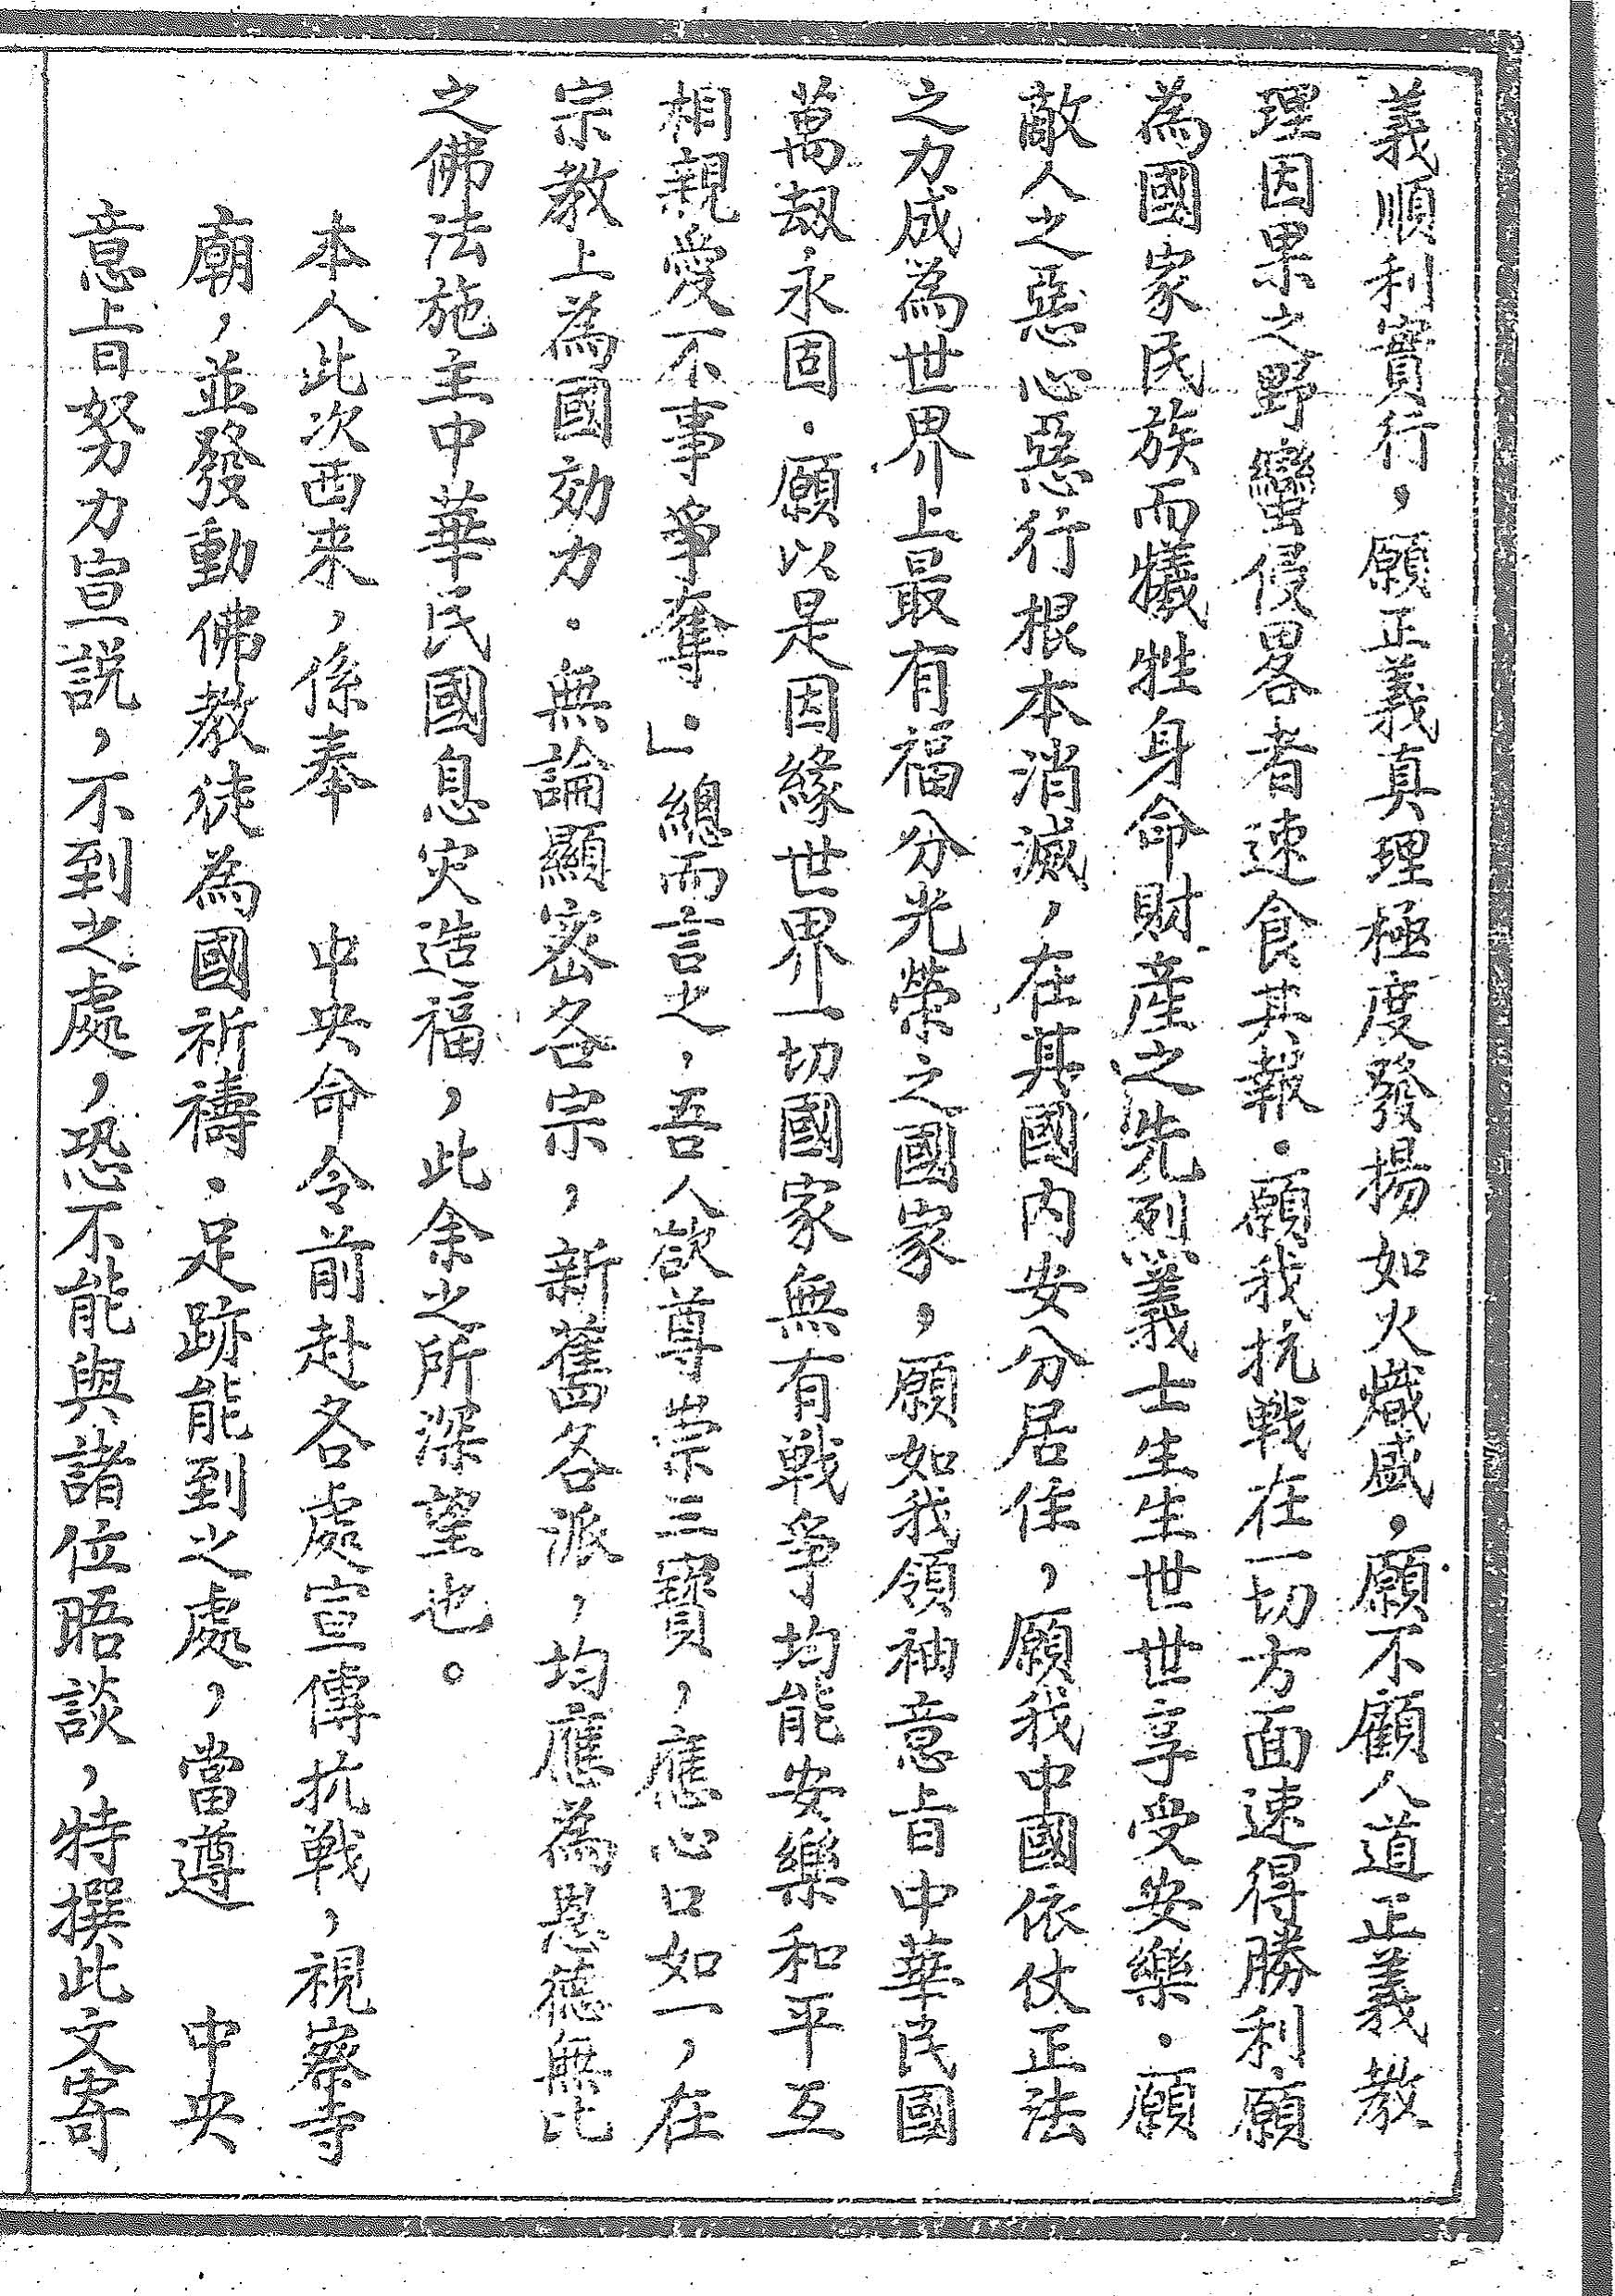 義順利實行，願正義真理極度發揚如火熾盛．願不顧人道正義教
理因果之野蠻侵畧者速食其報．願我抗戰在一切方面速得勝利．願
為國家民族而犧牲身命財產之先烈義士生生世世享受安樂．願
敵人之惡心惡行根本消滅，在其國內安分居住，願我中國依仗正法
之力成為世界上最有福分光榮之國家，願如我領袖意旨中華民國
萬刼永固．願以是因緣世界一切國家無有戰爭均能安樂和平互
相親愛不事爭奪．」總而言之，吾人欲尊崇三寶，應心口如一，在
宗教上為國効力．無論顯密各宗，新舊各派，均應為恩德無比
之佛法施主中華民國息災造福，此余之所深望也。
本人此次西來，係奉　中央命令前赴各處宣傳抗戰，視察寺
廟，並發動佛教徒為國祈禱．足跡能到之處，當遵　中央
意旨努力宣說，不到之處，恐不能與諸位晤談，特撰此文寄